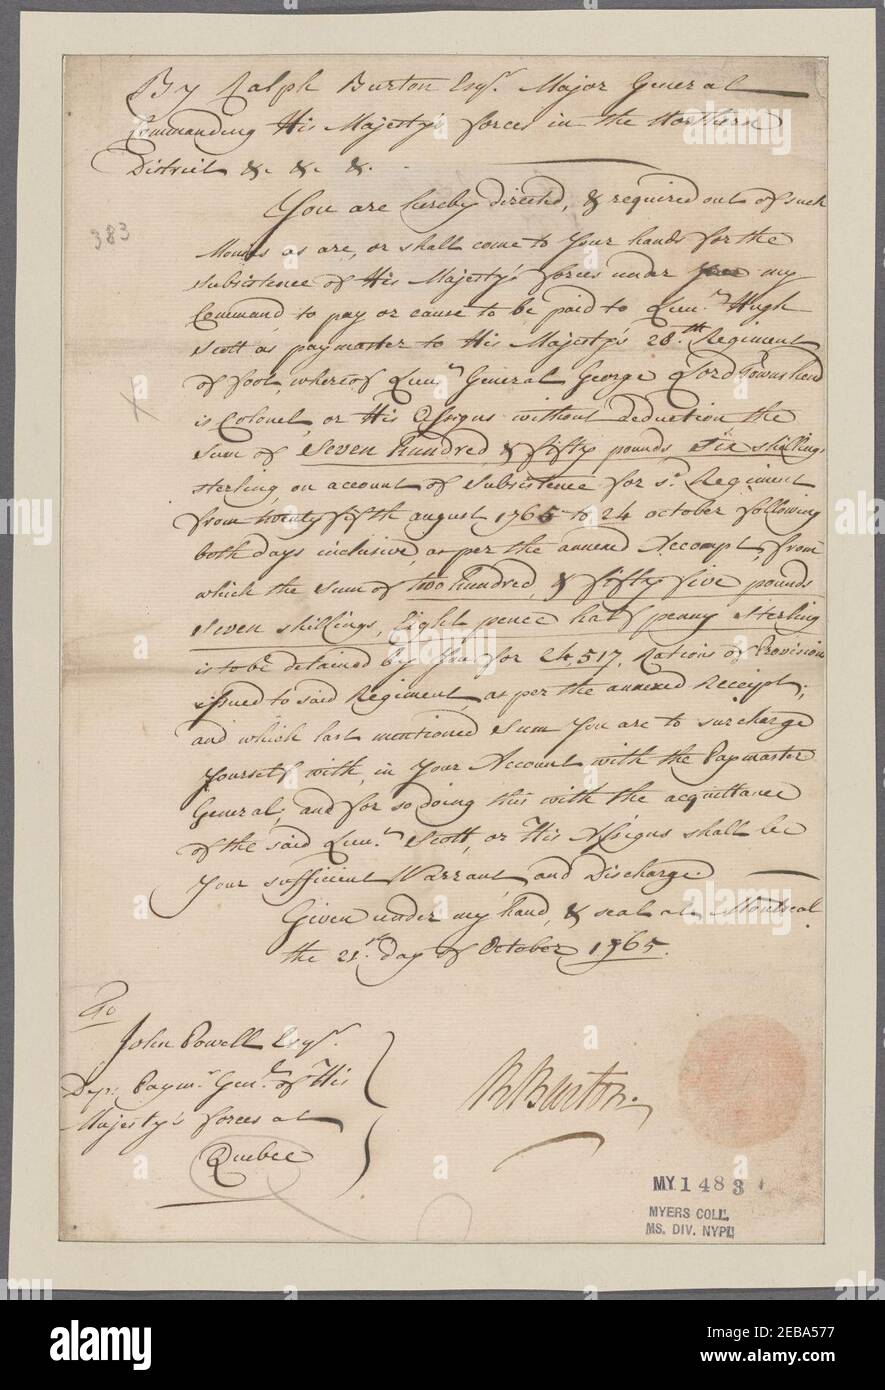 By Ralph Burton Esqr. Major General
Commanding His Majesty's forces in the Northern
District &. &. &.
You are hereby directed, & required out of such
383
Monies as are, or shall come to Your hands for the
Subsistence of His Majesty's forces under my
Command, to pay or cause to be paid to Lieut. Hugh
Scott as paymaster to His Majesty's 28th. Regiment
of foot, whereof Lieut. General George Lord Townshend
is Colonel, or His Assigns without deduction the
Sum of Seven hundred, & fifty pounds Six shillings
sterling, on account of Subsistence for sd. Regiment
from twenty fifth august 1765 to 24 october following
both days inclusive, as per the annexed Accompt, from
which the Sum of two hundred, & fifty five pounds
Seven shillings, Eight pence half penny Sterling
is to be detained by You for 24,517, Rations of Provision
issued to said Regiment, as per the annexed Receipt;
and which last mentioned Sum You are to surcharge
Yourself with, in Your Account with the Paymaster
General; and for so doing this with the acquittance
of the said Lieut. Scott, or His Assigns shall be
Your sufficient Warrant, and Discharge.
Given under my hand, & seal at Montreal
the 21st. day of October 1765.
To
John Powell Esqr.
Dep: Paymr. Genl. of His
Majesty's forces at
Quebec
R Burton.
MY 1483
MYERS COLL.
MS. DIV. NYPL
alamy
Image ID: 2EBA577
www.alamy.com